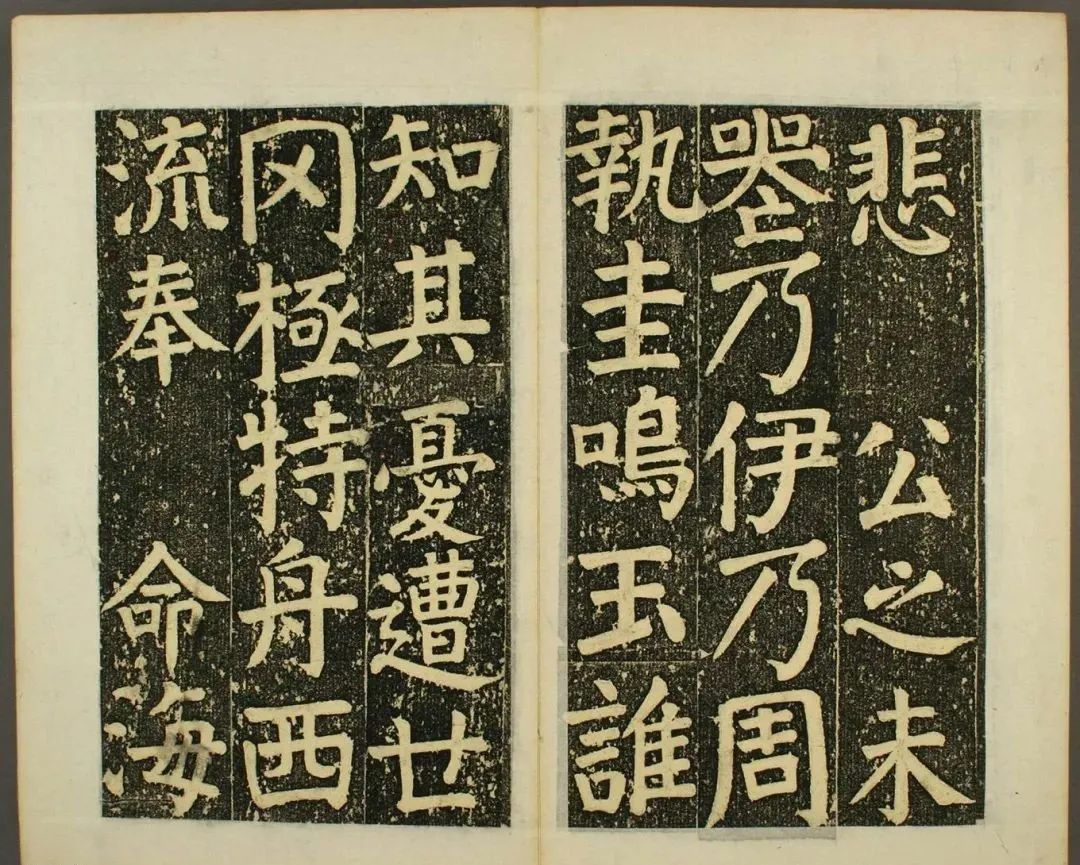 悲 公之未
喪乃伊乃周
執圭鳴玉誰
知其憂遭世
罔極特舟西
流奉 命海